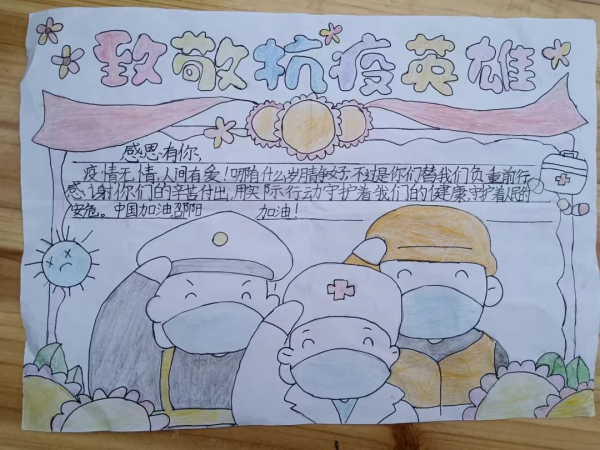 致敬抗疫英雄
感恩有你,
疫情无情,人间有爱!哪有什么岁月静好不过是你们替我们负重前行
感谢你们的辛苦付出,用实际行动守护着我们的健康守护着人民的
安危。中国加油邵阳 加油!